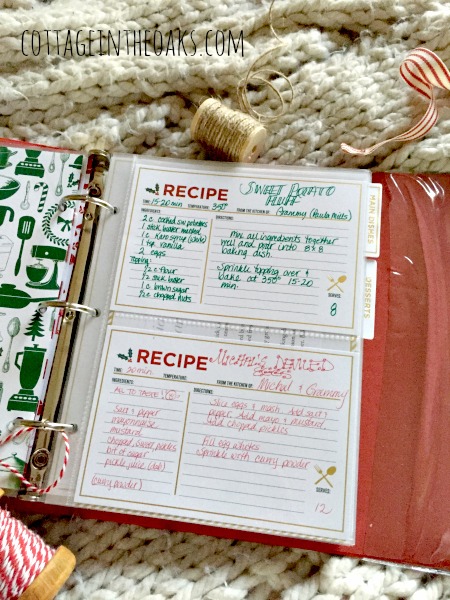 COTTAGEINTHEOAKS.COM
RECIPE
SWEET POTATO FLUFF
TIME 15-20 min TEMPERATURE 350°
FROM THE KITCHEN OF Grammy (Paula Mills)
INGREDIENTS
2 c cooked sw. potatoes
1 stick butter melted
1 c Karo syrup (dark)
1 tsp vanilla
2 eggs
Topping:
1/2 c flour
1/2 stick butter
1 c brown sugar
1/2 c chopped nuts
DIRECTIONS
Mix all ingredients together
well and pour into 8 x 8
baking dish.
Sprinkle topping over +
bake at 350° 15-20
min.
SERVES
8
MAIN DISHES
DESSERTS
RECIPE
DEVILED
EGGS
TIME 20 min TEMPERATURE
FROM THE KITCHEN OF Michal + Grammy
INGREDIENTS
ALL TO TASTE!
Salt + pepper
mayonnaise
mustard
chopped sweet pickles
bit of sugar
pickle juice (dab)
(curry powder)
DIRECTIONS
Slice eggs + mash. Add salt +
pepper. Add mayo + mustard,
add chopped pickles
Fill egg whites
Sprinkle with curry powder
SERVES
12